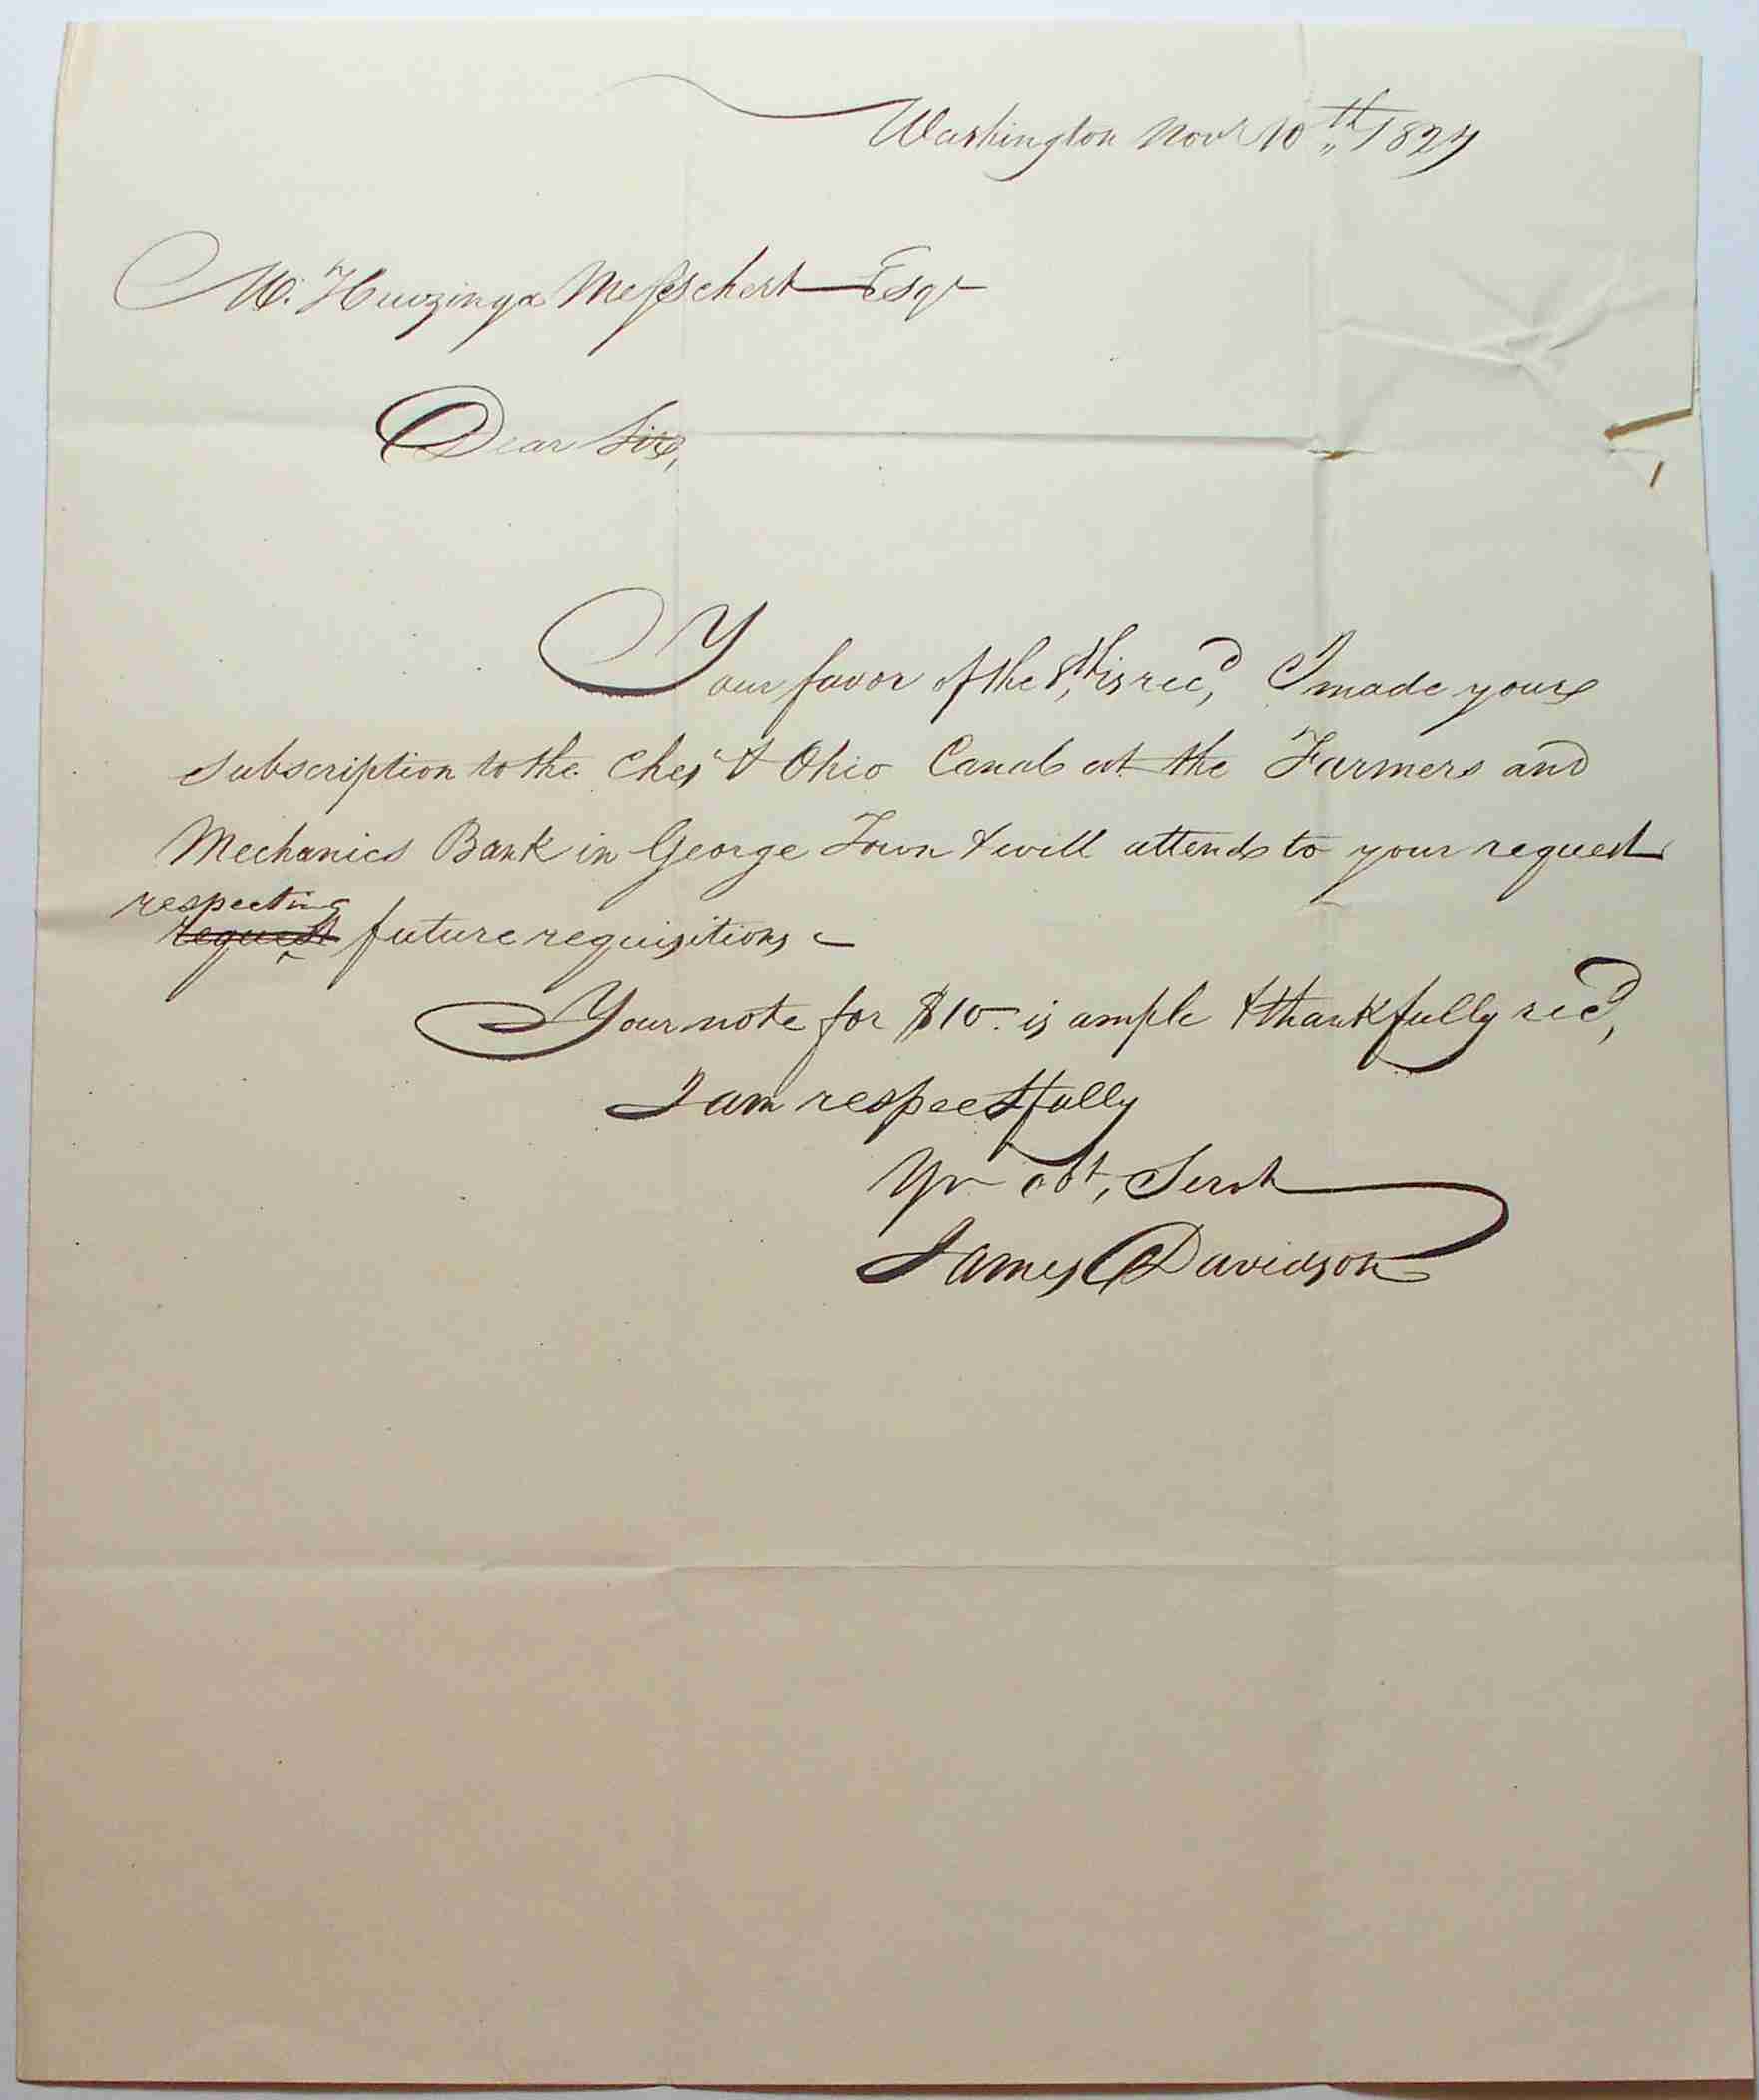 Washington Novr 10th 1827
M. Huizinga Messchert Esqr
Dear Sir,
Your favor of the 8th, is recd, I made your
subscription to the Ches & Ohio Canal at the Farmers and
Mechanics Bank in George Town & will attend to your request
respecting
request future requisitions —
Your note for $10 - is ample & thankfully recd,
I am respectfully
Yr obt, Servt
James Davidson